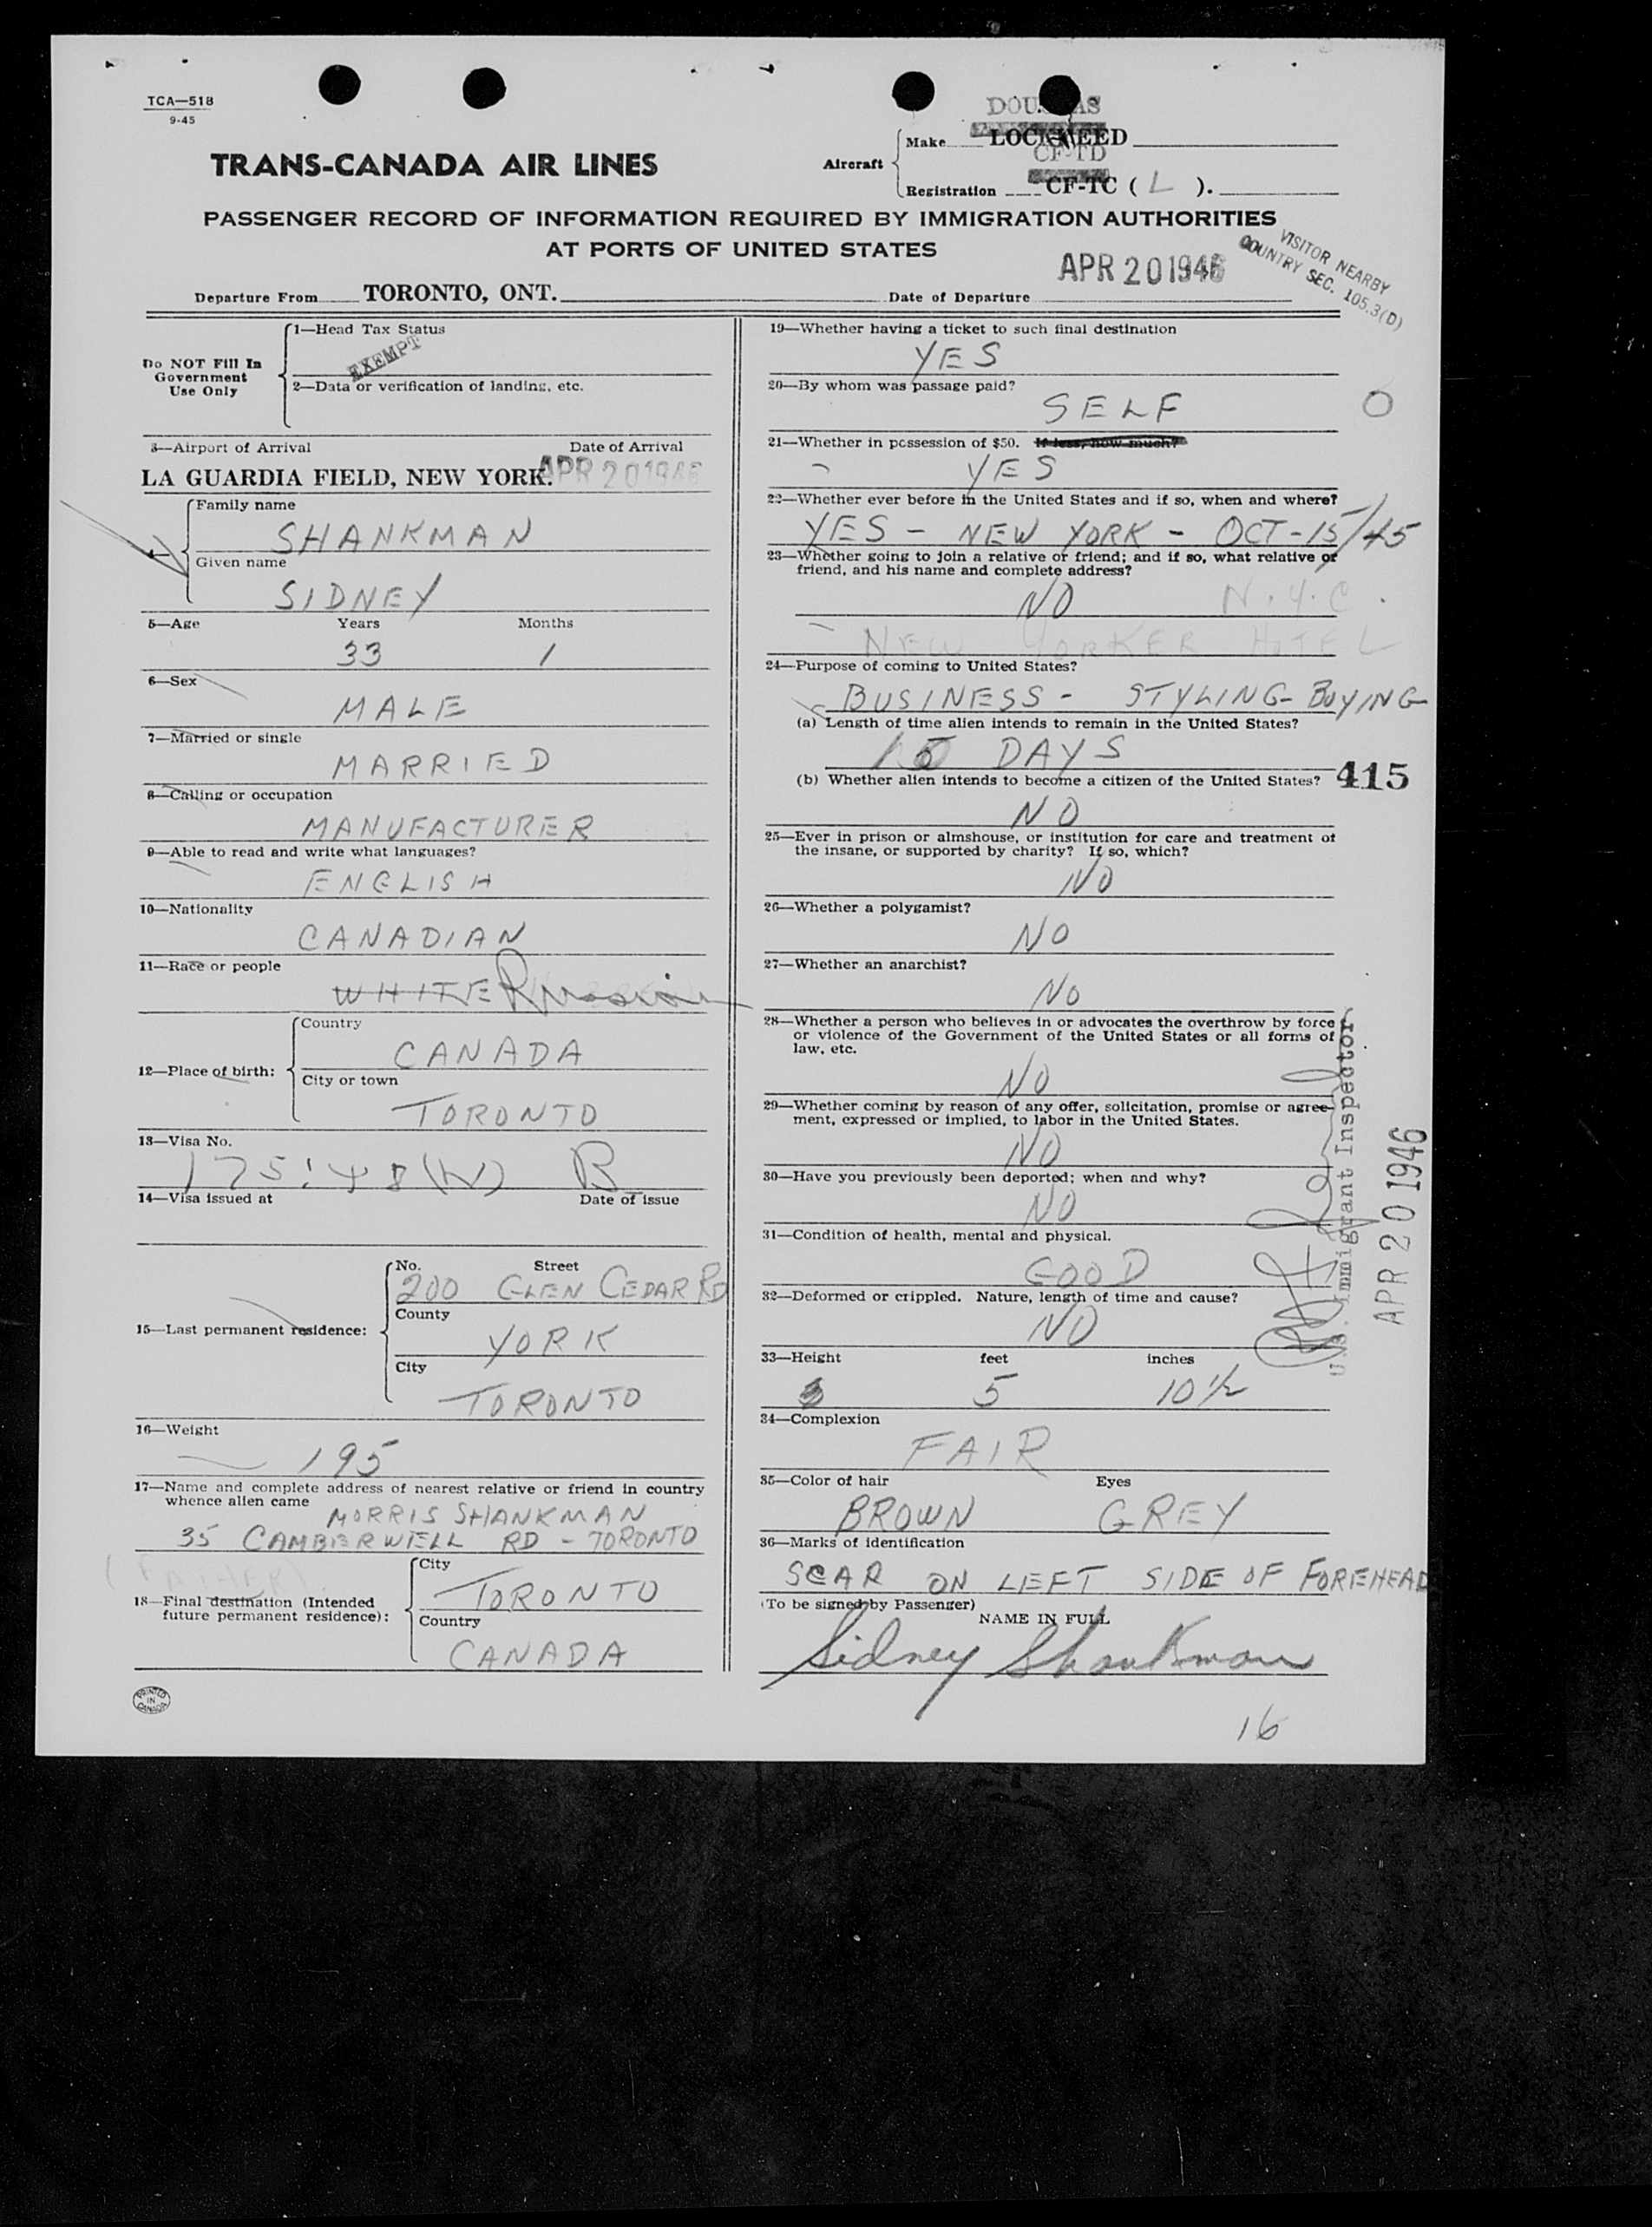 TCA—518
9-45
DOUGLAS
Aircraft
Make LOCKHEED
CF-TD
Registration CF-TC ( L ).
TRANS-CANADA AIR LINES
PASSENGER RECORD OF INFORMATION REQUIRED BY IMMIGRATION AUTHORITIES
AT PORTS OF UNITED STATES
VISITOR NEARBY
COUNTRY SEC. 105.3(D)
APR 20 1946
Departure From TORONTO, ONT. Date of Departure
Do NOT Fill In
Government
Use Only
1—Head Tax Status
EXEMPT
2—Data or verification of landing, etc.
3—Airport of Arrival Date of Arrival
LA GUARDIA FIELD, NEW YORK. APR 20 1946
4—
Family name
SHANKMAN
Given name
SIDNEY
5—Age Years Months
33 1
6—Sex
MALE
7—Married or single
MARRIED
8—Calling or occupation
MANUFACTURER
9—Able to read and write what languages?
ENGLISH
10—Nationality
CANADIAN
11—Race or people
WHITE Russian
12—Place of birth:
Country
CANADA
City or town
TORONTO
13—Visa No.
B
14—Visa issued at Date of issue
15—Last permanent residence:
No. Street
200 GLEN CEDAR RD
County
YORK
City
TORONTO
16—Weight
195
17—Name and complete address of nearest relative or friend in country
whence alien came
MORRIS SHANKMAN
35 CAMBERWELL RD - TORONTO
(FATHER)
18—Final destination (Intended
future permanent residence):
City
TORONTO
Country
CANADA
PRINTED
IN
CANADA
19—Whether having a ticket to such final destination
YES
20—By whom was passage paid?
SELF
O
21—Whether in possession of $50. If less, how much?
YES
22—Whether ever before in the United States and if so, when and where?
YES - NEW YORK - OCT-15/45
23—Whether going to join a relative or friend; and if so, what relative or
friend, and his name and complete address?
NO N.Y.C.
NEW YORKER HOTEL
24—Purpose of coming to United States?
BUSINESS - STYLING-BUYING
(a) Length of time alien intends to remain in the United States?
15 DAYS
(b) Whether alien intends to become a citizen of the United States?
415
NO
25—Ever in prison or almshouse, or institution for care and treatment of
the insane, or supported by charity? If so, which?
NO
26—Whether a polygamist?
NO
27—Whether an anarchist?
NO
28—Whether a person who believes in or advocates the overthrow by force
or violence of the Government of the United States or all forms of
law, etc.
NO
29—Whether coming by reason of any offer, solicitation, promise or agree-
ment, expressed or implied, to labor in the United States.
NO
30—Have you previously been deported; when and why?
NO
31—Condition of health, mental and physical.
GOOD
32—Deformed or crippled. Nature, length of time and cause?
NO
33—Height feet inches
5 10 1/2
34—Complexion
FAIR
35—Color of hair Eyes
BROWN GREY
36—Marks of identification
SCAR ON LEFT SIDE OF FOREHEAD
(To be signed by Passenger)
NAME IN FULL
Sidney Shankman
16
U.S. Immigrant Inspector
APR 20 1946